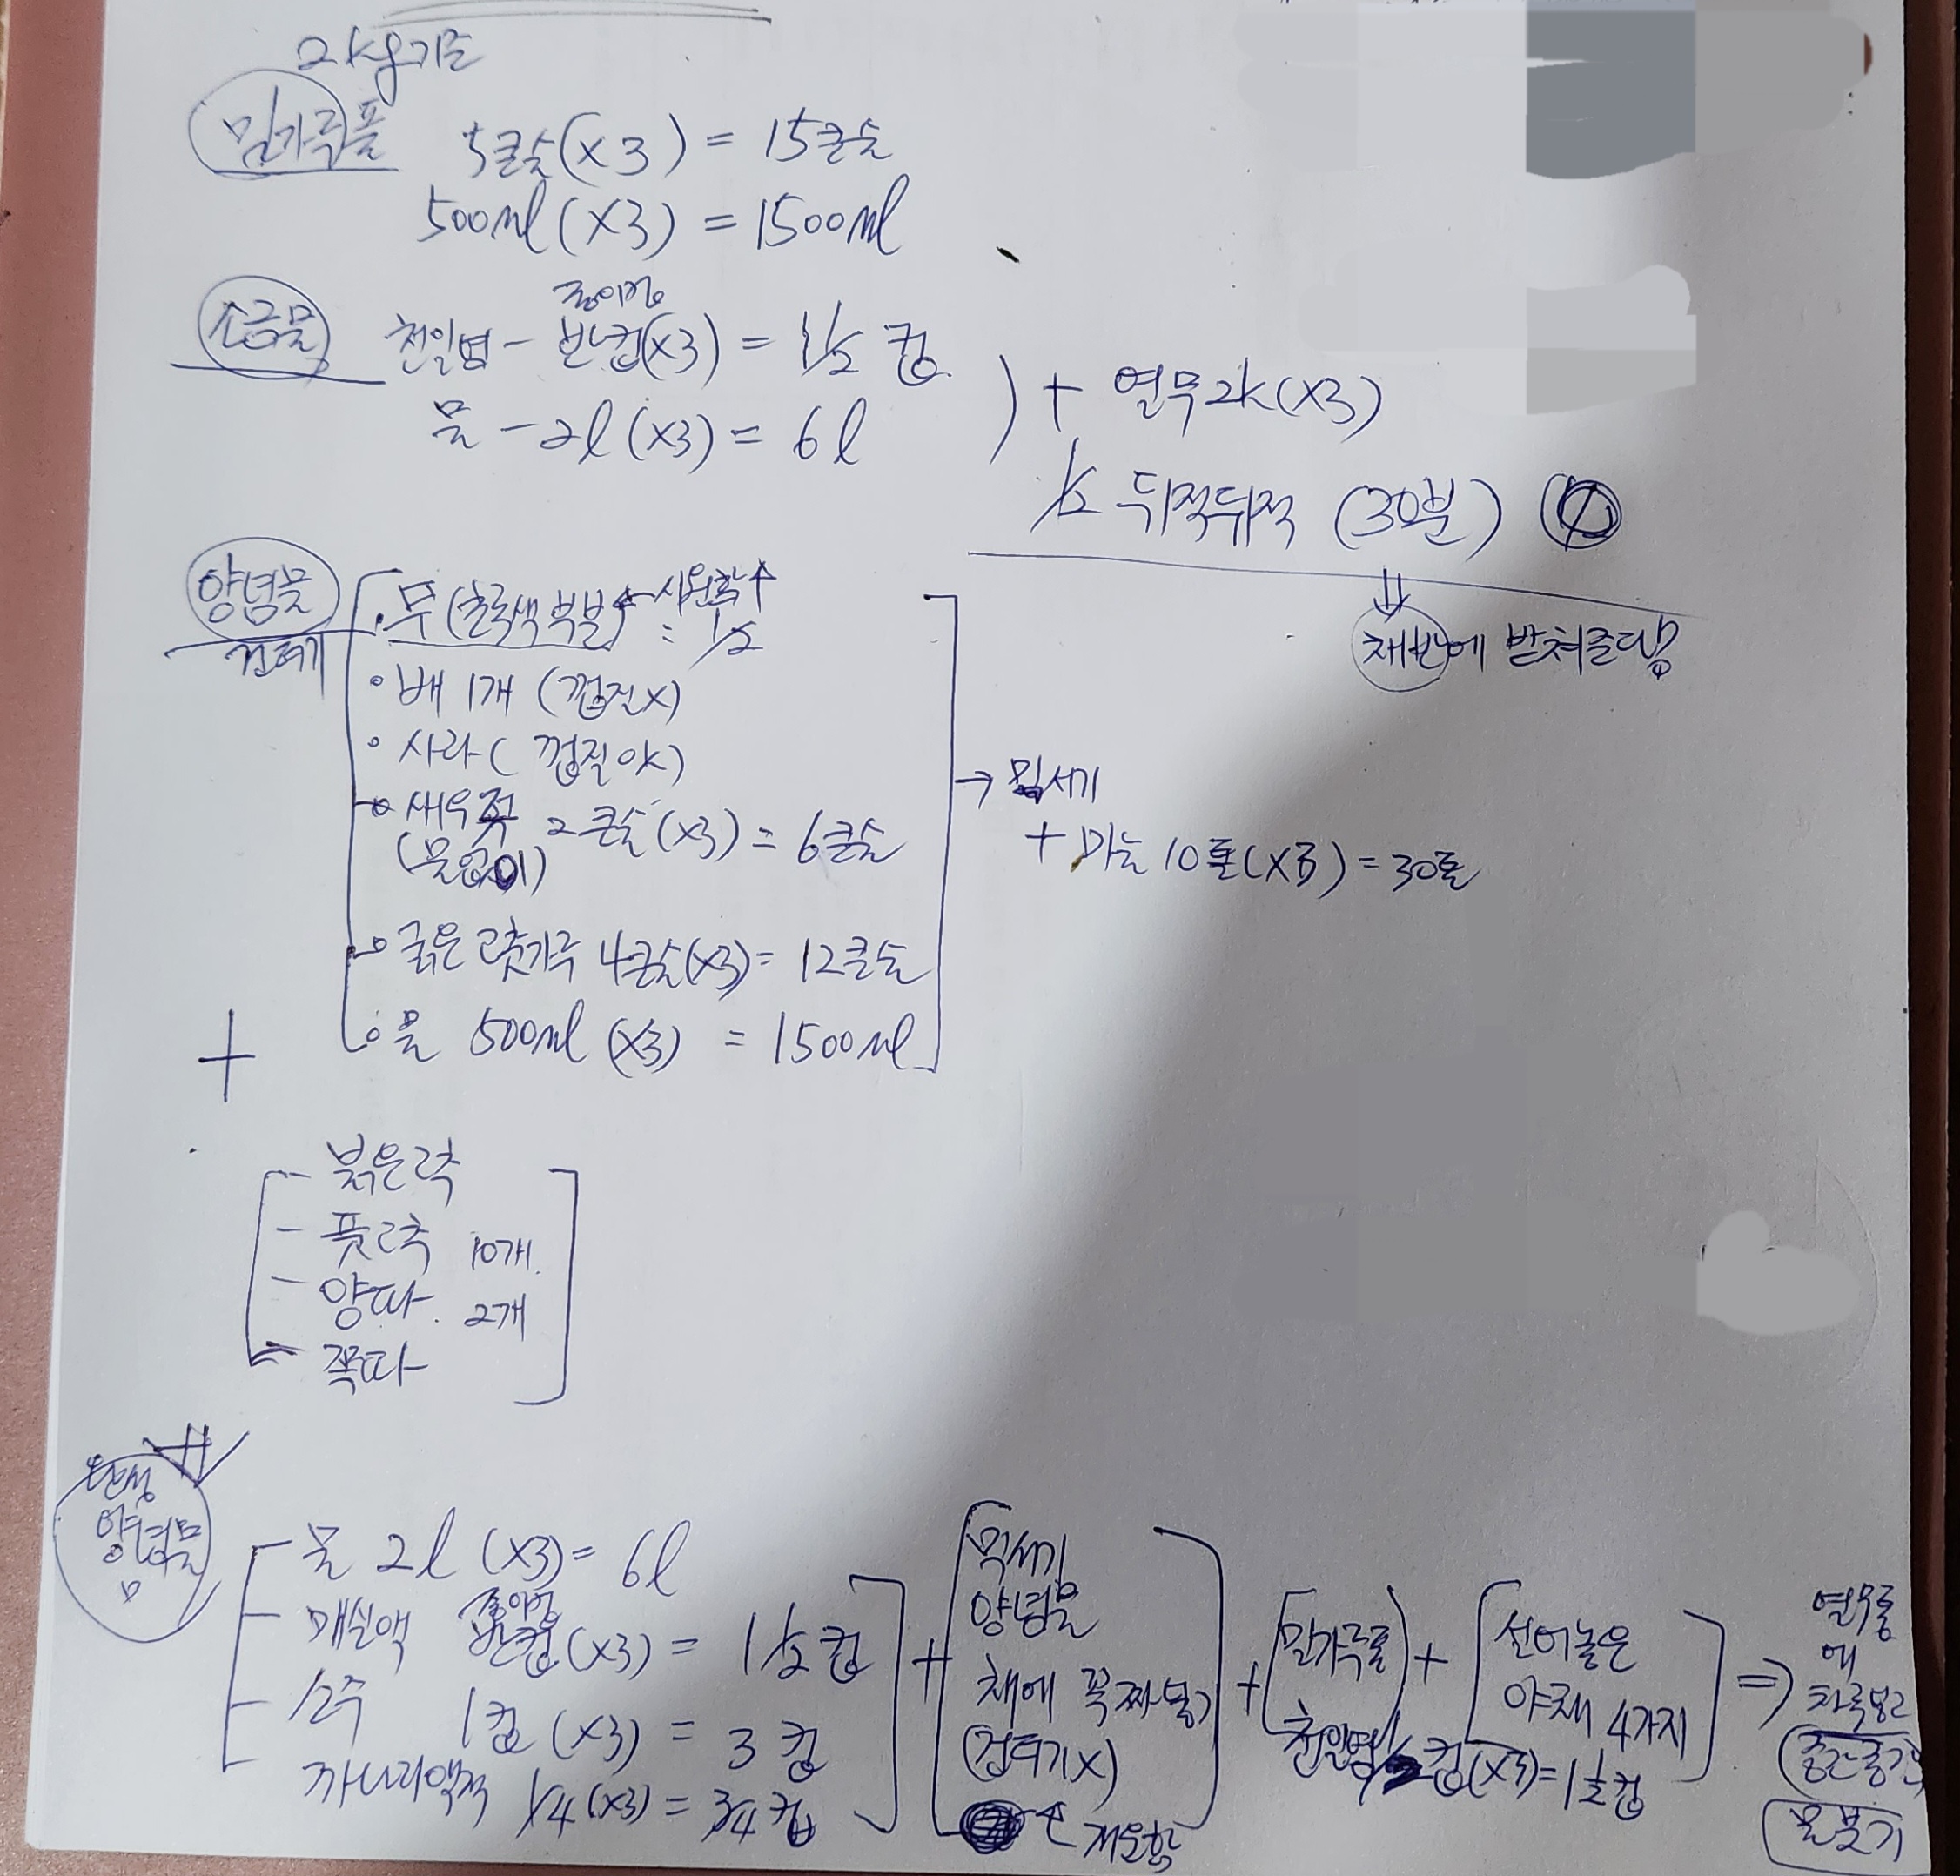 2kg기준
밀가루풀
5큰술(x3) = 15큰술
500ml (x3) = 1500ml
소금물
종이컵
천일염 - 반컵(x3) = 1 1/2 컵
물 - 2l (x3) = 6l
) + 열무2k(x3)
1/2 뒤적뒤적 (30분)
⇓
채반에 받쳐준다!
양념물
건더기
· 무 (초록색 부분) ← 시원함↑
= 1/2
· 배 1개 (껍질x)
· 사과 (껍질 x)
· 새우젓 2큰술 (x3) = 6큰술
(물없이)
· 굵은 고춧가루 4큰술(x3) = 12큰술
· 물 500ml (x3) = 1500ml
→ 믹서기
+ 마늘 10톨(x3) = 30톨
+
- 붉은고추
- 풋고추 10개.
- 양파. 2개
- 쪽파
완성
양념물
- 물 2l (x3) = 6l
- 매실액 종이컵 반컵 (x3) = 1 1/2 컵
- 소주 1컵 (x3) = 3 컵
까나리액젓 1/4 (x3) = 3/4 컵
+
믹서기
양념물
채에 꼭 짜놓기
(건더기x)
↑
+ 밀가루풀
천일염 1/2컵(x3) = 1 1/2컵
+ 썰어놓은
야채 4가지
⇒ 열무통
에
차곡넣고
(중간중간)
물붓기